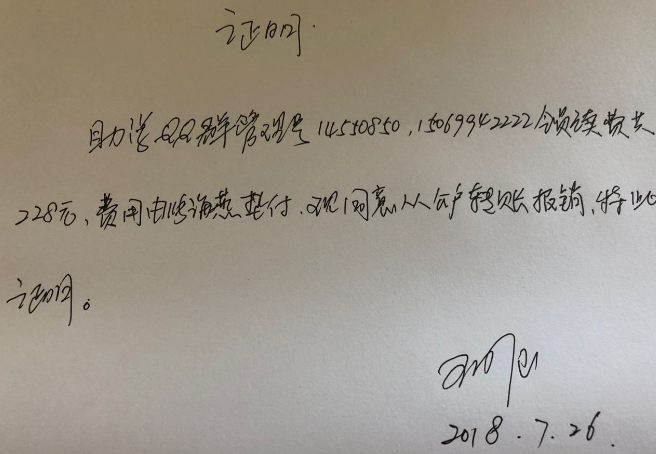 证明
助学QQ群管理号14550850,15069942222会员续费共
228元、费用由海燕垫付.现同意从公户转账报销,特此
证明。
2018.7.26